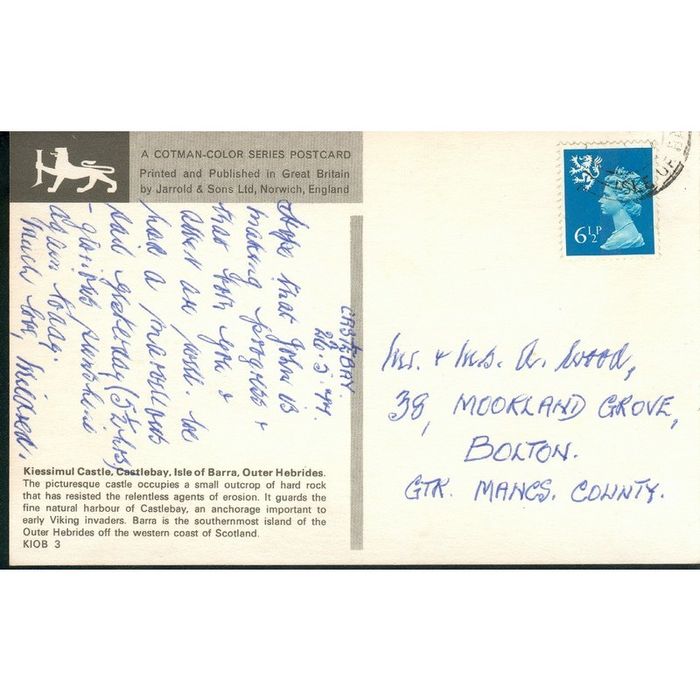 A COTMAN-COLOR SERIES POSTCARD
Printed and Published in Great Britain
by Jarrold & Sons Ltd, Norwich, England
CASTLEBAY.
Hope that John is
making progress &
that both you &
are well. We
had a marvellous
sail yesterday (5½ hrs)
- glorious sunshine
again today.
Much love, Mildred.
6½P
Mr. & Mrs. A. Wood,
38, MOORLAND GROVE,
BOLTON.
GTR. MANCS. COUNTY.
Kiessimul Castle, Castlebay, Isle of Barra, Outer Hebrides.
The picturesque castle occupies a small outcrop of hard rock
that has resisted the relentless agents of erosion. It guards the
fine natural harbour of Castlebay, an anchorage important to
early Viking invaders. Barra is the southernmost island of the
Outer Hebrides off the western coast of Scotland.
KIOB 3